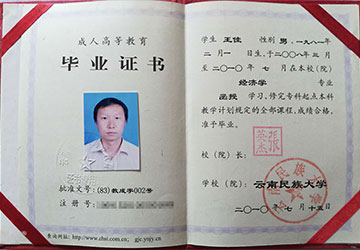 成人高等教育
毕业证书
批准文号：(83)教成字002号
注册号：
查询网址：http://www.chsi.com.cn; gjc.ynjy.cn
学生 王佳 性别 男，一九八一
年二月一日生，于二〇〇八年三月
至二〇一〇年七月在本校(院)
经济学 专业
函授 学习，修完专科起点本科
教学计划规定的全部课程，成绩合格，
准予毕业。
校(院)长：
学校(院)：云南民族大学
二〇一〇年七月十五日